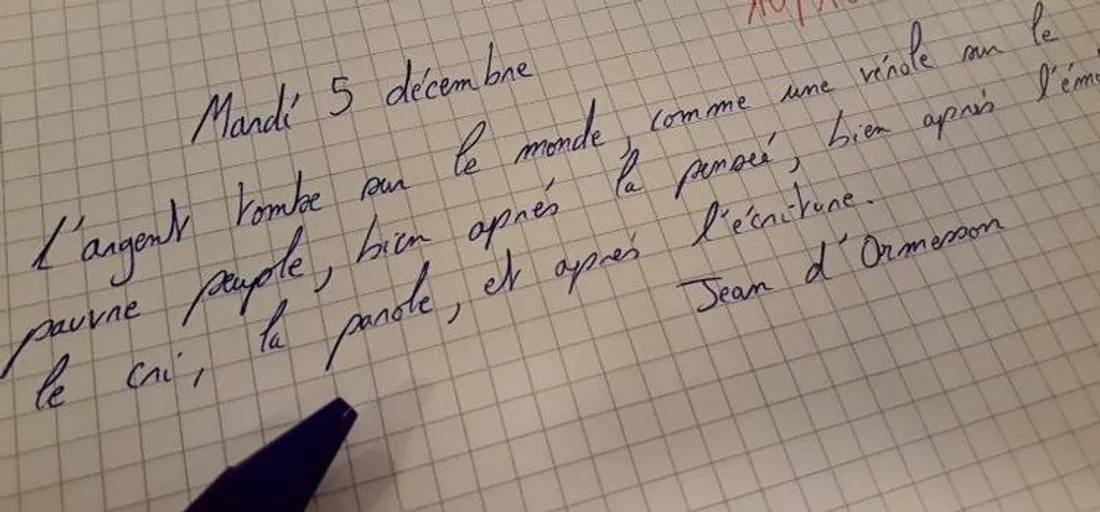 Mardi 5 décembre
L'argent tombe sur le monde, comme une vérole sur le
pauvre peuple, bien après la pensée, bien après
le cri, la parole, et après l'écriture.
Jean d'Ormesson